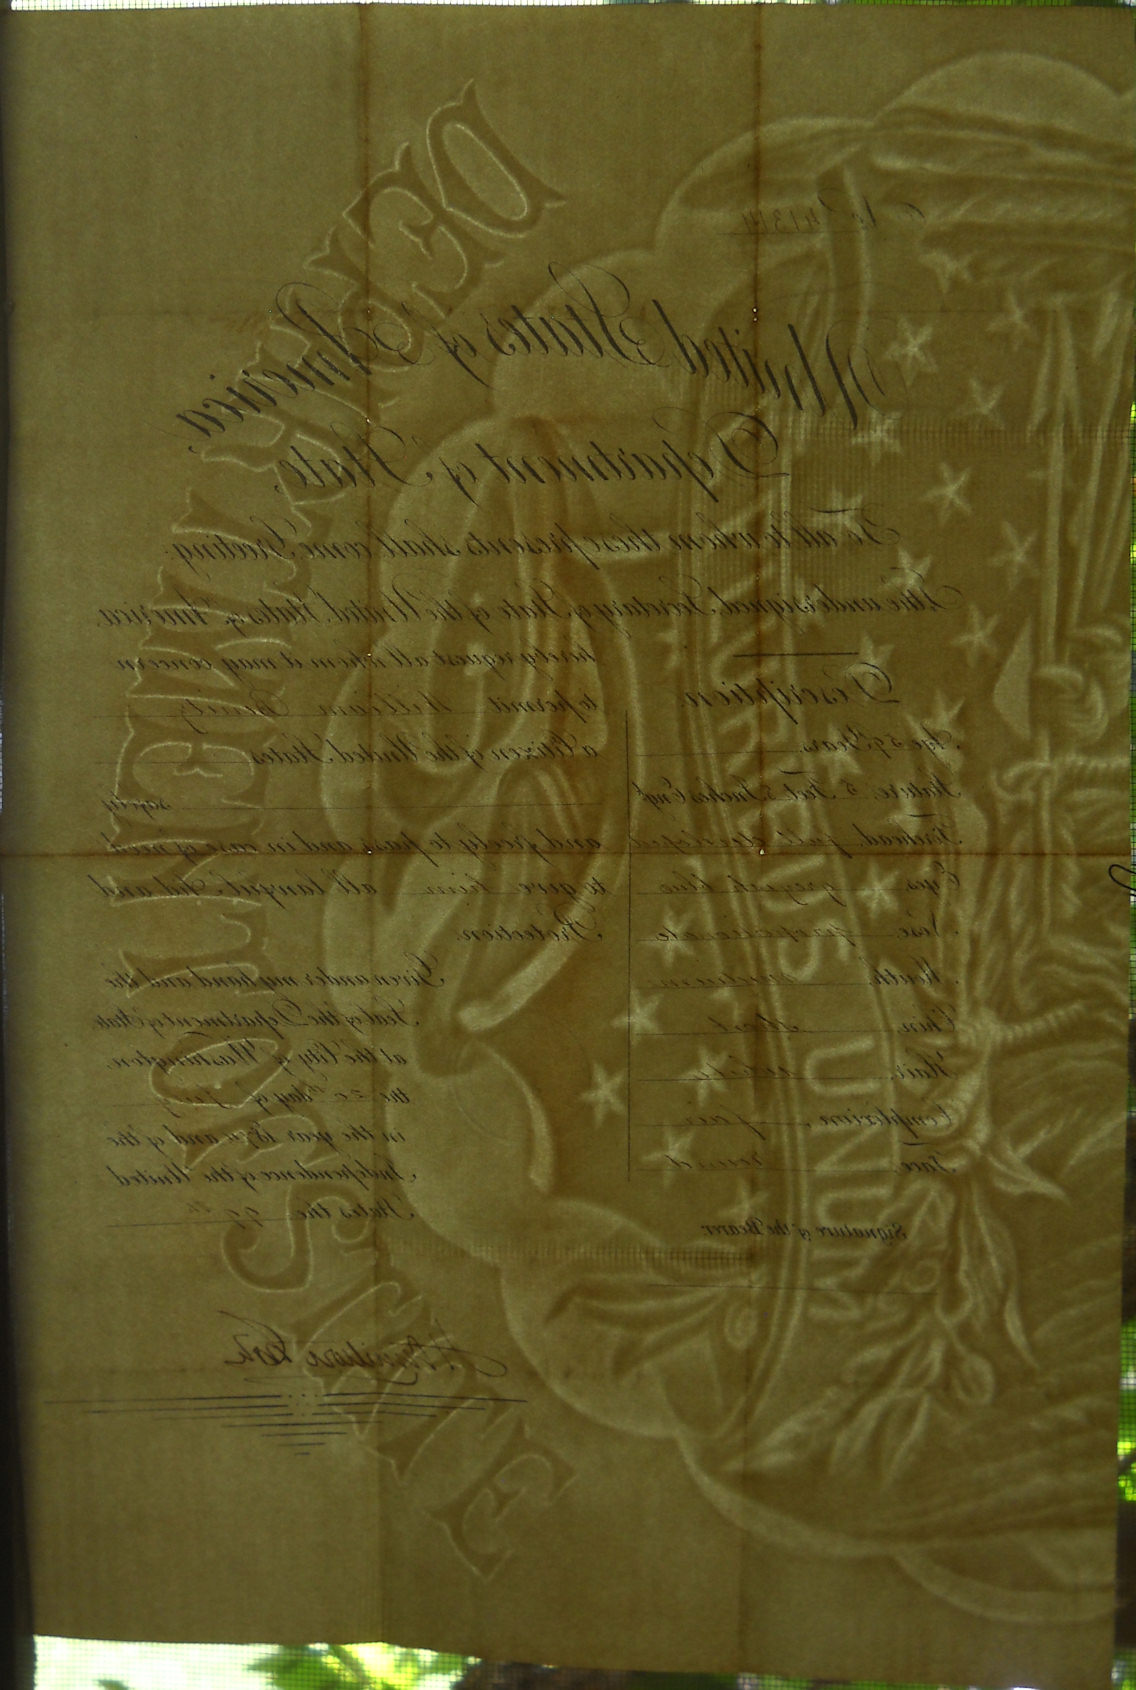 No 41314
United States of America,
Department of State,
To all to whom these presents shall come Greeting:
I the undersigned, Secretary of State of the United States of America,
hereby request all whom it may concern
to permit William Benitz
a Citizen of the United States
safely
and freely to pass and in case of need
to give him all lawful Aid and
Protection.
Description.
Age 59 Years
Stature, 5 Feet Inches Eng.
Forehead, full developed
Eyes, greyish blue
Nose, proportionate
Mouth, medium
Chin, short
Hair, white
Complexion, fair
Face, round
Signature of the Bearer
Given under my hand and the
Seal of the Department of State,
at the City of Washington,
the day of
in the year 1874 and of the
Independence of the United
States the 99th
Hamilton Fish
DEPARTMENT OF STATE
E PLURIBUS UNUM